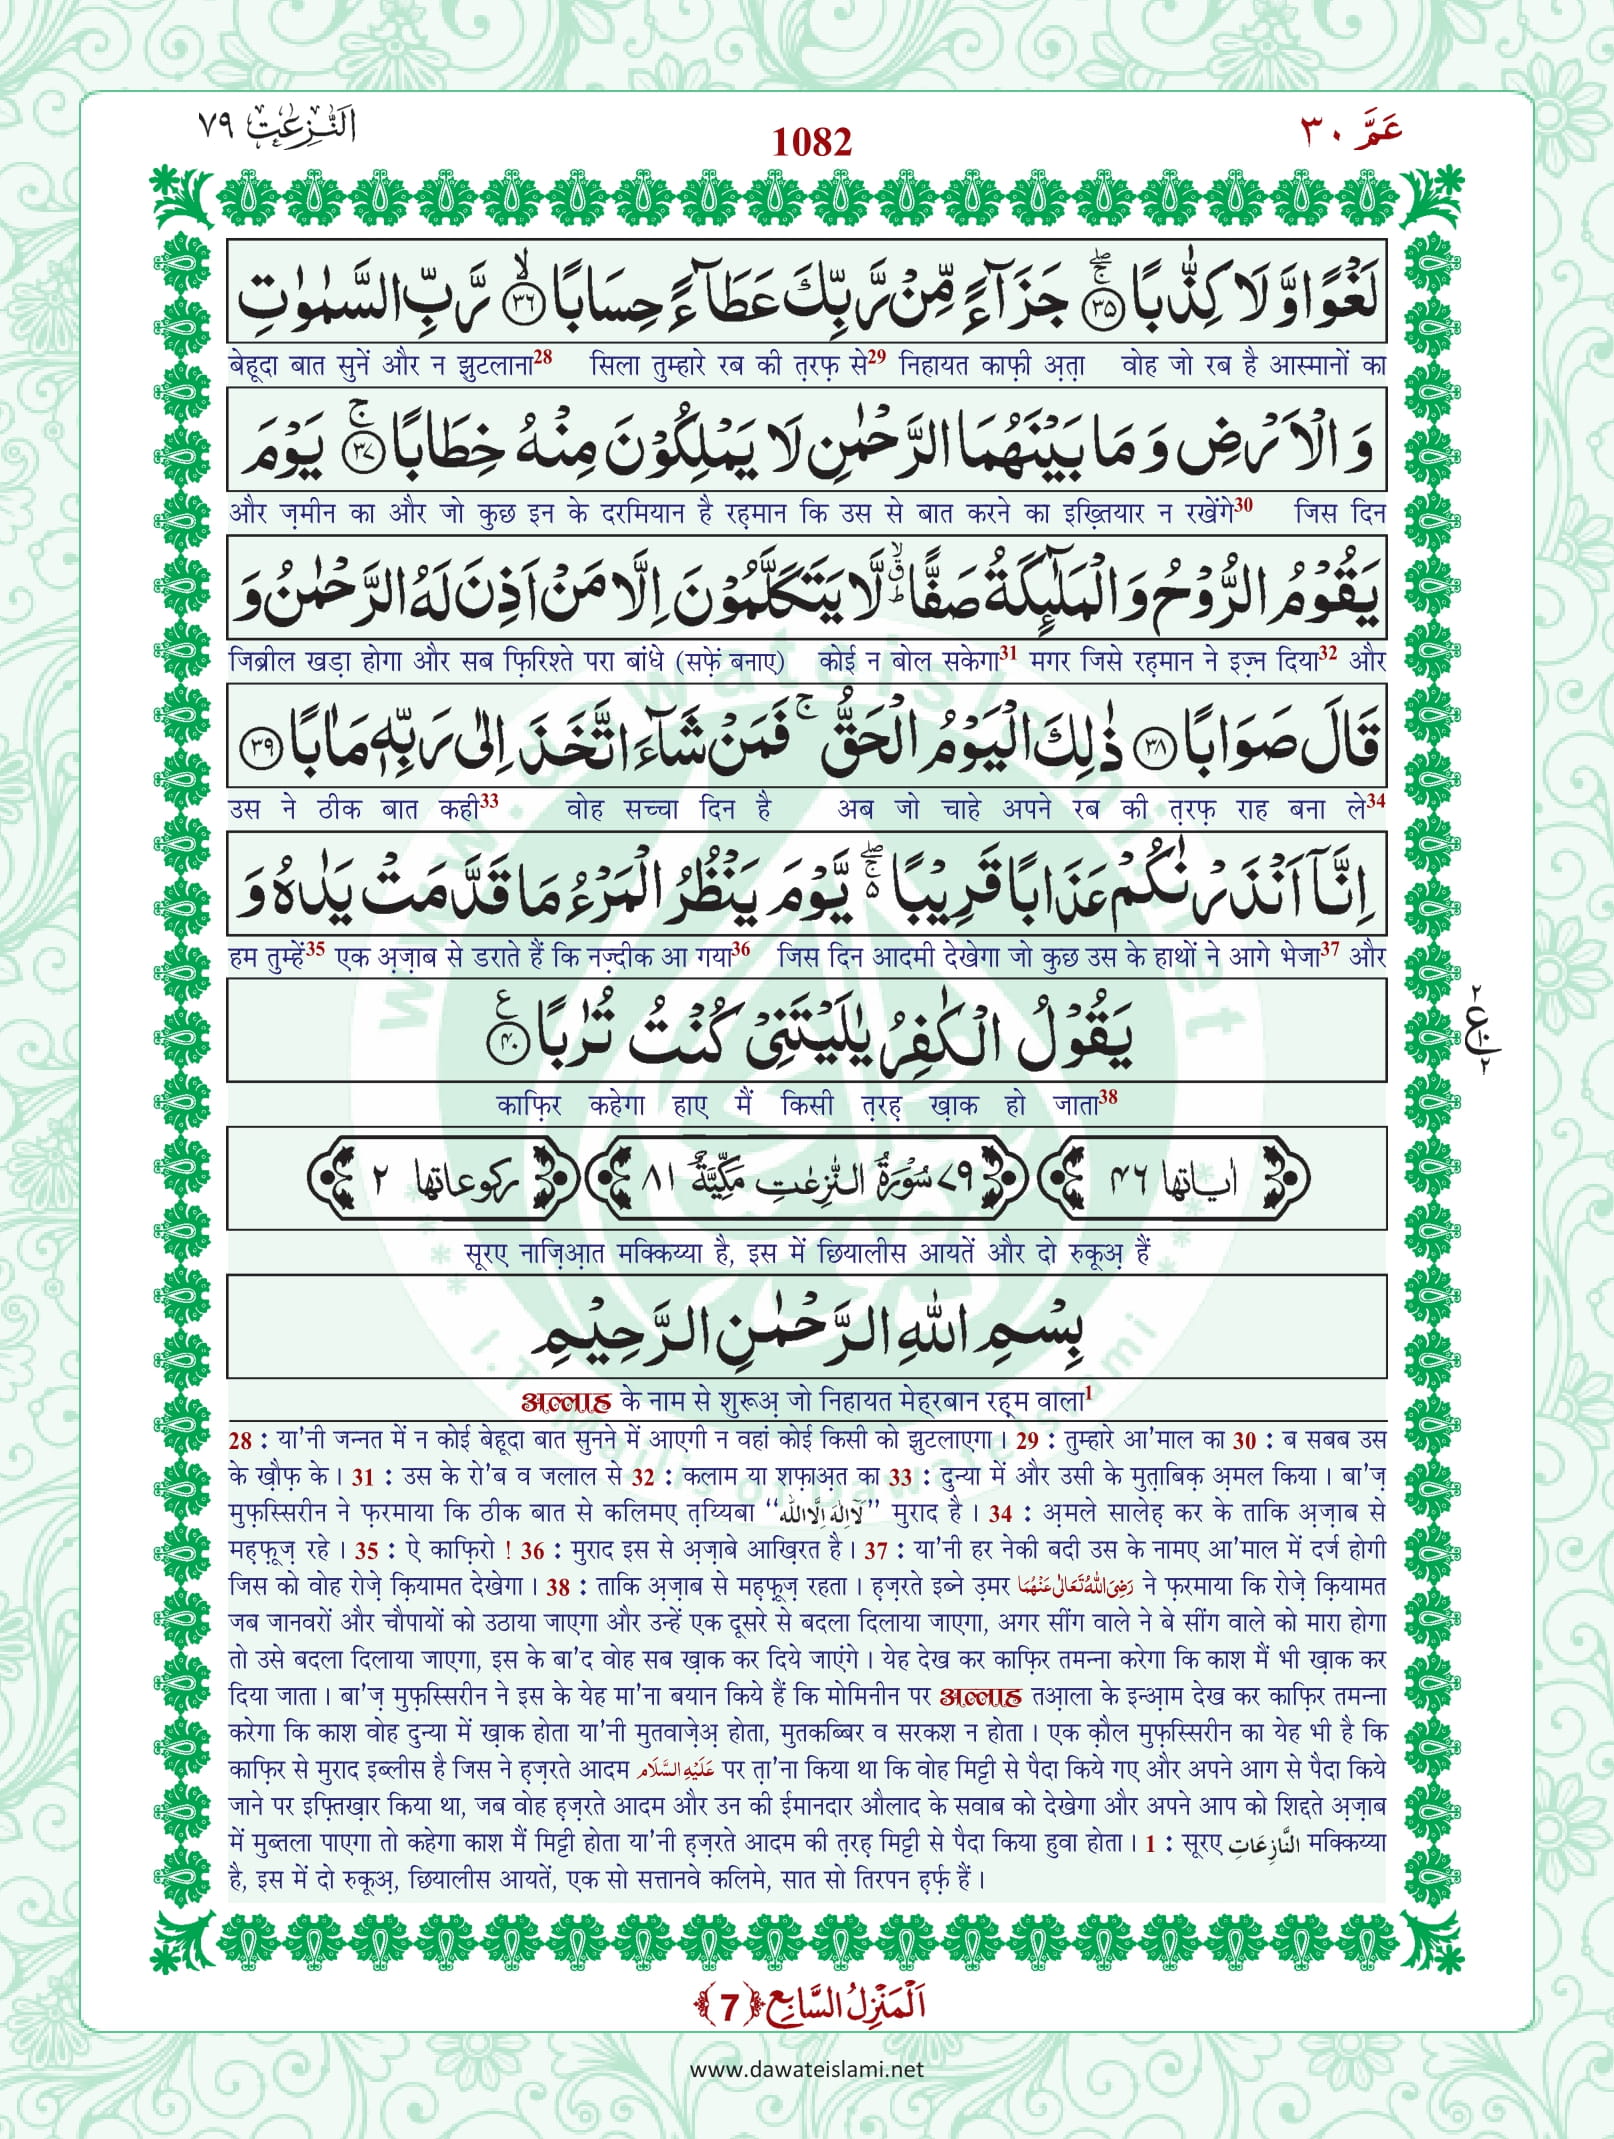 عَمَّ ٣٠
1082
اَلنّٰزِعٰت ٧٩
لَغْوًا وَّلَا كِذّٰبًا ﴿٣٥﴾ جَزَآءً مِّنْ رَّبِّكَ عَطَآءً حِسَابًا ﴿٣٦﴾ رَّبِّ السَّمٰوٰتِ
बेहूदा बात सुनें और न झुटलाना28 सिला तुम्हारे रब की त़रफ़ से29 निहायत काफ़ी अ़त़ा वोह जो रब है आस्मानों का
وَالْاَرْضِ وَمَا بَيْنَهُمَا الرَّحْمٰنِ لَا يَمْلِكُوْنَ مِنْهُ خِطَابًا ﴿٣٧﴾ يَوْمَ
और ज़मीन का और जो कुछ इन के दरमियान है रह़मान कि उस से बात करने का इख़्तियार न रखेंगे30 जिस दिन
يَقُوْمُ الرُّوْحُ وَالْمَلٰٓئِكَةُ صَفًّا لَّا يَتَكَلَّمُوْنَ اِلَّا مَنْ اَذِنَ لَهُ الرَّحْمٰنُ وَ
जिब्रील खड़ा होगा और सब फ़िरिश्ते परा बांधे (सफ़ें बनाए) कोई न बोल सकेगा31 मगर जिसे रह़मान ने इज़्न दिया32 और
قَالَ صَوَابًا ﴿٣٨﴾ ذٰلِكَ الْيَوْمُ الْحَقُّ ۚ فَمَنْ شَآءَ اتَّخَذَ اِلٰى رَبِّهٖ مَاٰبًا ﴿٣٩﴾
उस ने ठीक बात कही33 वोह सच्चा दिन है अब जो चाहे अपने रब की त़रफ़ राह बना ले34
اِنَّآ اَنْذَرْنٰكُمْ عَذَابًا قَرِيْبًا يَّوْمَ يَنْظُرُ الْمَرْءُ مَا قَدَّمَتْ يَدٰهُ وَ
हम तुम्हें35 एक अ़ज़ाब से डराते हैं कि नज़्दीक आ गया36 जिस दिन आदमी देखेगा जो कुछ उस के हाथों ने आगे भेजा37 और
يَقُوْلُ الْكٰفِرُ يٰلَيْتَنِيْ كُنْتُ تُرٰبًا ﴿٤٠﴾
काफ़िर कहेगा हाए मैं किसी त़रह़ ख़ाक हो जाता38
اٰیاتها ٤٦ ٧٩ سُوْرَةُ النّٰزِعٰتِ مَكِّيَّةٌ ٨١ ركوعاتها ٢
सूरए नाज़िआ़त मक्किय्या है, इस में छियालीस आयतें और दो रुकूअ़ हैं
بِسْمِ اللّٰهِ الرَّحْمٰنِ الرَّحِيْمِ
अल्लाह के नाम से शुरूअ़ जो निहायत मेह्‍रबान रह़्म वाला1
28 : या'नी जन्नत में न कोई बेहूदा बात सुनने में आएगी न वहां कोई किसी को झुटलाएगा । 29 : तुम्हारे आ'माल का 30 : ब सबब उस
के ख़ौफ़ के । 31 : उस के रो'ब व जलाल से 32 : कलाम या शफ़ाअ़त का 33 : दुन्या में और उसी के मुत़ाबिक़ अ़मल किया । बा'ज़
मुफ़स्सिरीन ने फ़रमाया कि ठीक बात से कलिमए त़य्यिबा ‘‘لَآ اِلٰهَ اِلَّا اللّٰه’’ मुराद है । 34 : अ़मले सालेह़ कर के ताकि अ़ज़ाब से
मह़फ़ूज़ रहे । 35 : ऐ काफ़िरो ! 36 : मुराद इस से अ़ज़ाबे आख़िरत है । 37 : या'नी हर नेकी बदी उस के नामए आ'माल में दर्ज होगी
जिस को वोह रोज़े क़ियामत देखेगा । 38 : ताकि अ़ज़ाब से मह़फ़ूज़ रहता । ह़ज़रते इब्ने उ़मर رَضِىَ اللّٰهُ تَعَالٰى عَنْهُمَا ने फ़रमाया कि रोज़े क़ियामत
जब जानवरों और चौपायों को उठाया जाएगा और उन्हें एक दूसरे से बदला दिलाया जाएगा, अगर सींग वाले ने बे सींग वाले को मारा होगा
तो उसे बदला दिलाया जाएगा, इस के बा'द वोह सब ख़ाक कर दिये जाएंगे । येह देख कर काफ़िर तमन्ना करेगा कि काश मैं भी ख़ाक कर
दिया जाता । बा'ज़ मुफ़स्सिरीन ने इस के येह मा'ना बयान किये हैं कि मोमिनीन पर अल्लाह तआ़ला के इन्आ़म देख कर काफ़िर तमन्ना
करेगा कि काश वोह दुन्या में ख़ाक होता या'नी मुतवाज़ेअ़ होता, मुतकब्बिर व सरकश न होता । एक क़ौल मुफ़स्सिरीन का येह भी है कि
काफ़िर से मुराद इब्लीस है जिस ने ह़ज़रते आदम عَلَيْهِ السَّلَام पर त़ा'ना किया था कि वोह मिट्टी से पैदा किये गए और अपने आग से पैदा किये
जाने पर इफ़्तिख़ार किया था, जब वोह ह़ज़रते आदम और उन की ईमानदार औलाद के सवाब को देखेगा और अपने आप को शिद्दते अ़ज़ाब
में मुब्तला पाएगा तो कहेगा काश मैं मिट्टी होता या'नी ह़ज़रते आदम की त़रह़ मिट्टी से पैदा किया हुवा होता । 1 : सूरए النَّازِعَاتِ मक्किय्या
है, इस में दो रुकूअ़, छियालीस आयतें, एक सो सत्तानवे कलिमे, सात सो तिरपन ह़र्फ़ हैं ।
اَلْمَنْزِلُ السَّابِع ﴿7﴾
www.dawateislami.net